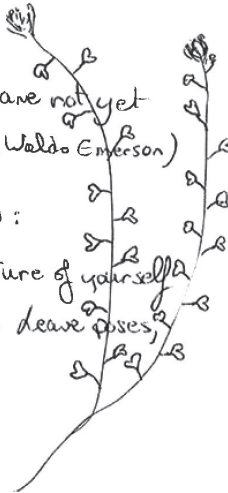 are not yet
Waldo Emerson)
:
ture of yourself
leave poses,